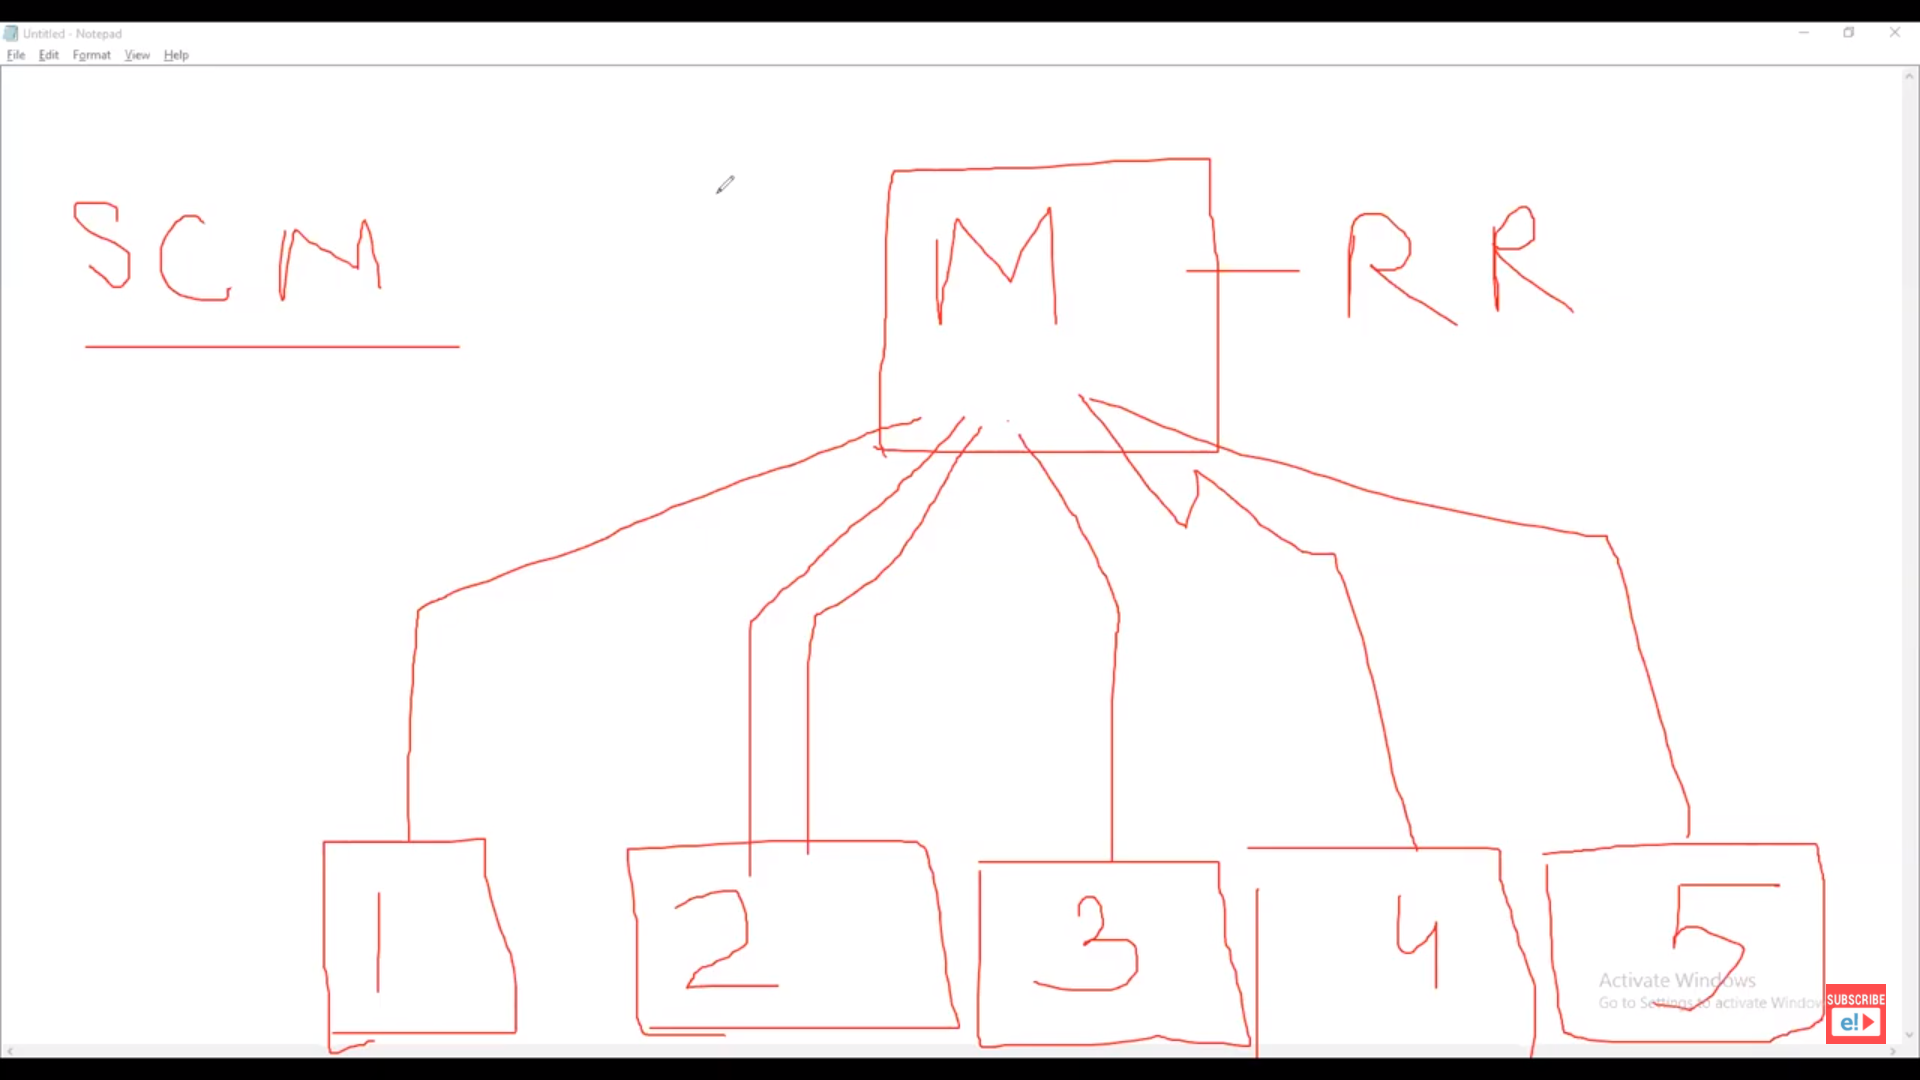 Untitled - Notepad
File Edit Format View Help
SCM
M
RR
1
2
3
4
5
Activate Windows
Go to Settings to activate Window
SUBSCRIBE
e!